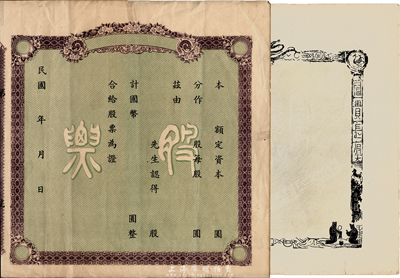 本 額定資本 圓
分作 股每股 圓
茲由 先生認得 股
計國幣 圓整
合給股票為證
民國 年 月 日
股票